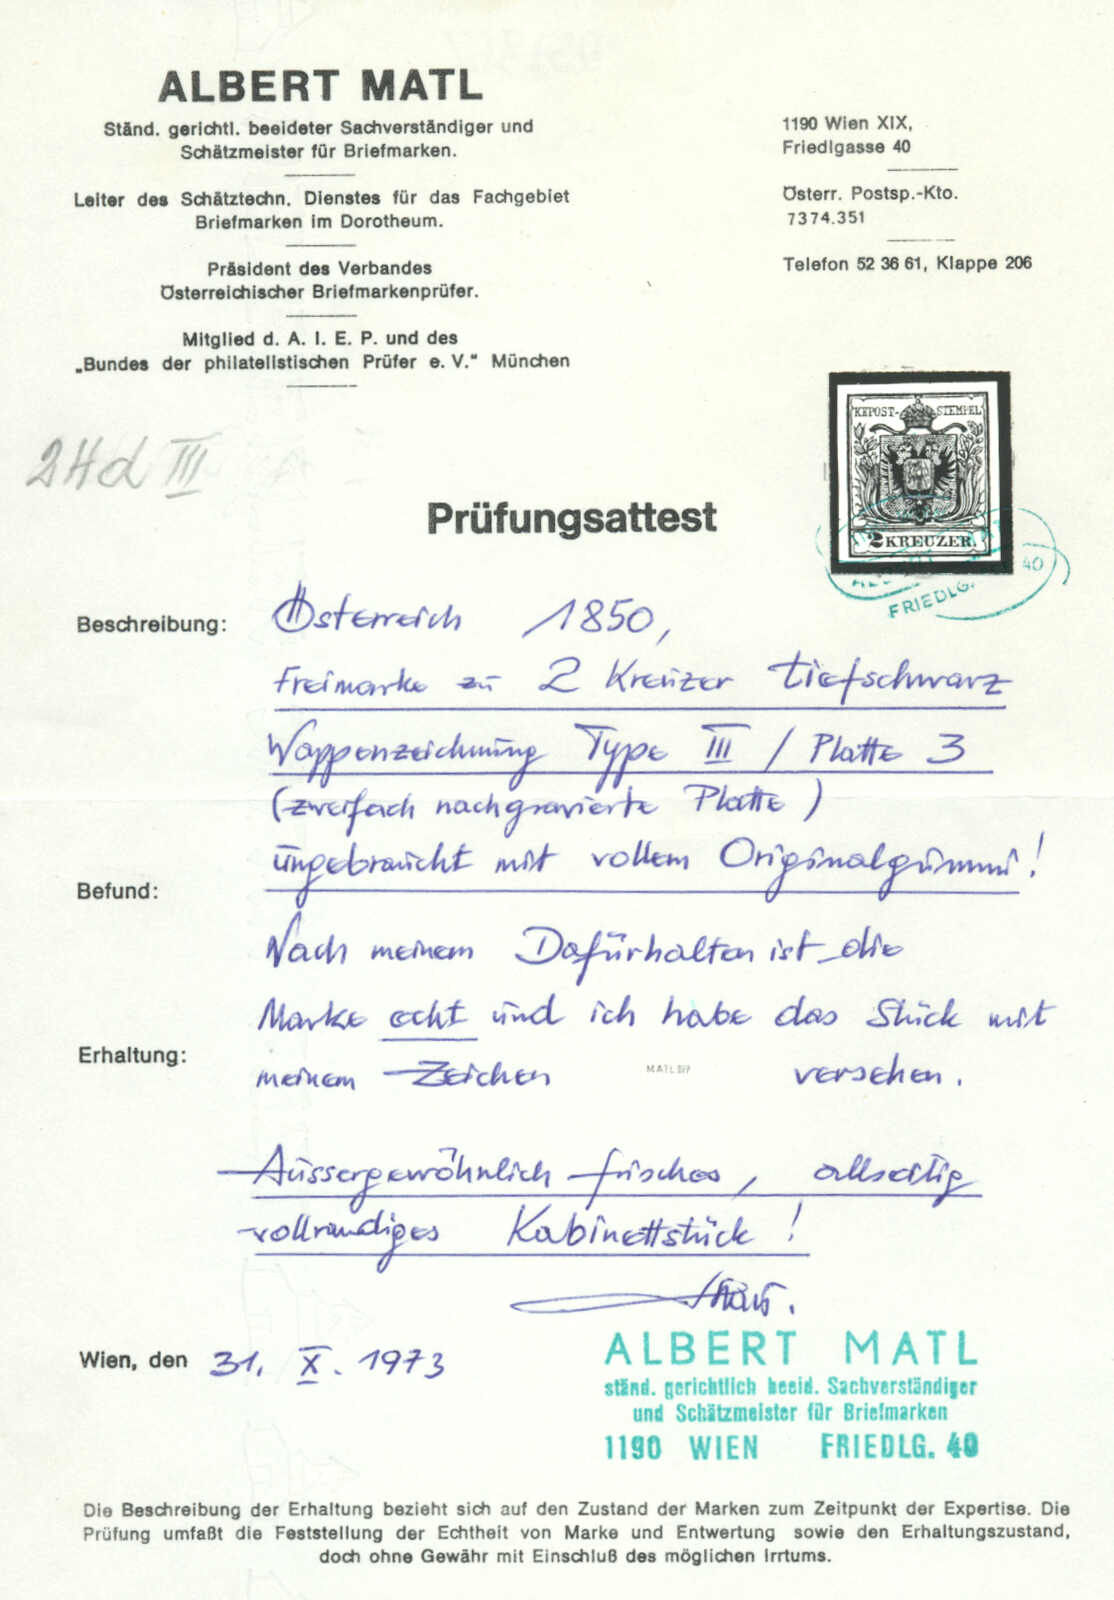 ALBERT MATL
Ständ. gerichtl. beeideter Sachverständiger und
Schätzmeister für Briefmarken.
Leiter des Schätztechn. Dienstes für das Fachgebiet
Briefmarken im Dorotheum.
Präsident des Verbandes
Österreichischer Briefmarkenprüfer.
Mitglied d. A. I. E. P. und des
„Bundes der philatelistischen Prüfer e. V.“ München
1190 Wien XIX,
Friedlgasse 40
Österr. Postsp.-Kto.
7374.351
Telefon 52 36 61, Klappe 206
KKPOST-STEMPEL
2 KREUZER.
FRIEDLG. 40
2Hd III
Prüfungsattest
Beschreibung: Österreich 1850,
Freimarke zu 2 Kreuzer tiefschwarz
Wappenzeichnung Type III / Platte 3
(zweifach nachgravierte Platte)
ungebraucht mit vollem Originalgummi!
Befund:
Nach meinem Dafürhalten ist die
Marke echt und ich habe das Stück mit
Erhaltung:
meinem Zeichen MATL versehen.
Aussergewöhnlich frisches, allseitig
vollrandiges Kabinettstück!
Wien, den 31. X. 1973
ALBERT MATL
ständ. gerichtlich beeid. Sachverständiger
und Schätzmeister für Briefmarken
1190 WIEN FRIEDLG. 40
Die Beschreibung der Erhaltung bezieht sich auf den Zustand der Marken zum Zeitpunkt der Expertise. Die
Prüfung umfaßt die Feststellung der Echtheit von Marke und Entwertung sowie den Erhaltungszustand,
doch ohne Gewähr mit Einschluß des möglichen Irrtums.